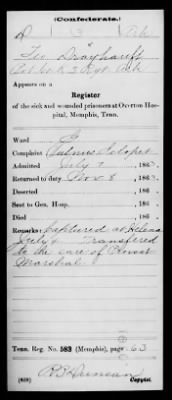 (Confederate.)
D 3 Ark
Geo Drayhauft
Appears on a
Register
of the sick and wounded prisoners at Overton Hos-
pital, Memphis, Tenn.
Ward G
Complaint
Admitted July 9, 186
Returned to duty Nov 8, 186
Deserted , 186
Sent to Gen. Hosp. , 186
Died , 186
Remarks: Captured at Helena
July 4 Transfered
to the care of Provost
Marshal
Tenn. Reg. No. 583 (Memphis), page 63
(639) Copyist.